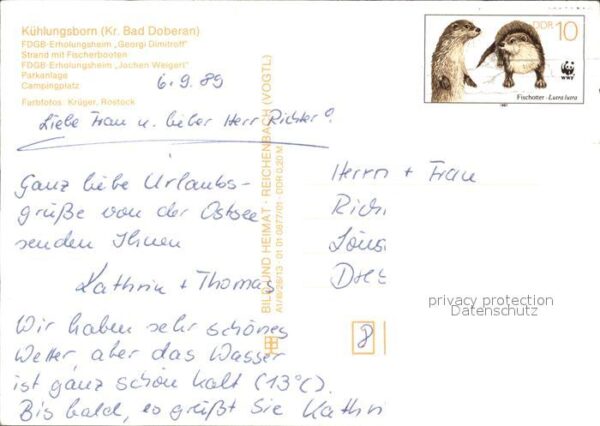 Kühlungsborn (Kr. Bad Doberan)
FDGB-Erholungsheim „Georgi Dimitroff"
Strand mit Fischerbooten
FDGB-Erholungsheim „Jochen Weigert"
Parkanlage
Campingplatz
Farbfotos: Krüger, Rostock
6.9.89
Liebe Frau u. lieber Herr Richter!
Ganz liebe Urlaubs-
grüße von der Ostsee
senden Ihnen
Kathrin + Thomas
Wir haben sehr schönes
Wetter, aber das Wasser
ist ganz schön kalt (13°C).
Bis bald, es grüßt Sie Kathri
BILD UND HEIMAT · REICHENBACH (VOGTL)
A1/B/26/13 01 01 0877/01 · DDR 0,20 M
DDR 10
WWF
Fischotter · Lutra lutra
Herrn + Frau
Rich
8
privacy protection
Datenschutz